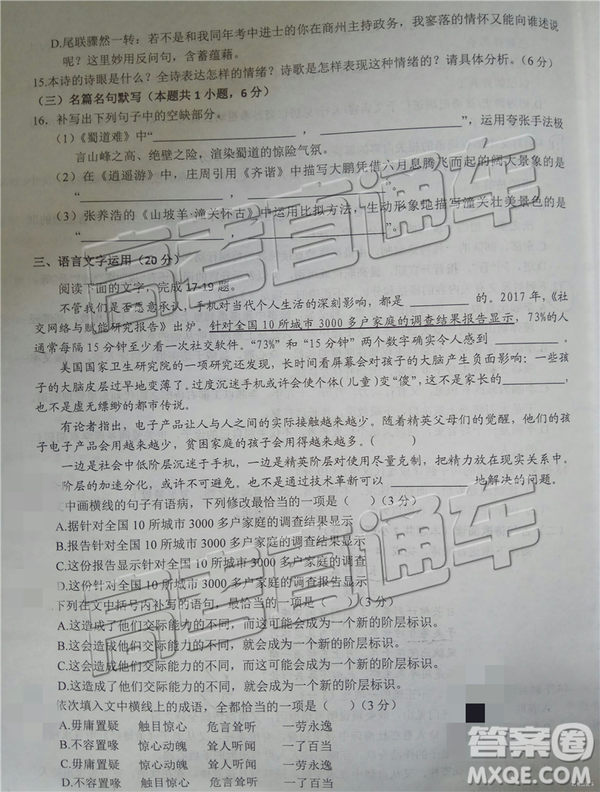 D.尾联骤然一转：若不是和我同年考中进士的你在商州主持政务，我寥落的情怀又能向谁述说
呢？这里妙用反问句，含蓄蕴藉。
15.本诗的诗眼是什么？全诗表达怎样的情绪？诗歌是怎样表现这种情绪的？请具体分析。（6分）
（三）名篇名句默写（本题共1小题，6分）
16. 补写出下列句子中的空缺部分。
（1）《蜀道难》中“__________，__________”，运用夸张手法极
言山峰之高、绝壁之险，渲染蜀道的惊险气氛。
（2）在《逍遥游》中，庄周引用《齐谐》中描写大鹏凭借六月息腾飞而起的阔大景象的是
“__________，__________”
（3）张养浩的《山坡羊·潼关怀古》中运用比拟方法，生动形象地描写潼关壮美景色的是
“__________，__________”
三、语言文字运用（20分）
阅读下面的文字，完成17-19题。
不管我们是否愿意承认，手机对当代个人生活的深刻影响，都是______的。2017年，《社
交网络与赋能研究报告》出炉。针对全国10所城市3000多户家庭的调查结果报告显示，73%的人
通常每隔15分钟至少看一次社交软件。“73%”和“15分钟”两个数字确实令人感到______。
美国国家卫生研究院的一项研究还发现，长时间看屏幕会对孩子的大脑产生负面影响：孩子
的大脑皮层过早地变薄了。过度沉迷手机或许会使个体（儿童）变“傻”，这不是家长的______，
也不是虚无缥缈的都市传说。
有论者指出，电子产品让人与人之间的实际接触越来越少。随着精英父母们的觉醒，他们的孩
子电子产品会用越来越少，贫困家庭的孩子会用得越来越多。（　　）
一边是社会中低阶层沉迷于手机，一边是精英阶层对使用尽量克制，把精力放在现实关系中，
阶层的加速分化，或许不可避免。也不是通过技术革新可以______地解决的问题。
中画横线的句子有语病，下列修改最恰当的一项是（　　）（3分）
A.据针对全国10所城市3000多户家庭的调查结果显示
B.报告针对全国10所城市3000多户家庭的调查结果显示
C.这份报告显示针对全国10所城市3000多户家庭的调查结果
D.这份针对全国10所城市3000多户家庭的调查报告显示
下列在文中括号内补写的语句，最恰当的一项是（　　）（3分）
A.这造成了他们交际能力的不同，而这可能会成为一个新的阶层标识。
B.这会造成他们交际能力的不同，就会成为一个新的阶层标识。
C.这会造成他们交际能力的不同，而这可能会成为一个新的阶层标识。
D.这造成了他们交际能力的不同，就会成为一个新的阶层标识。
依次填入文中横线上的成语，全都恰当的一项是（　　）（3分）
A.毋庸置疑　触目惊心　危言耸听　一劳永逸
B.不容置喙　惊心动魄　耸人听闻　一了百当
C.毋庸置疑　触目惊心　耸人听闻　一了百当
D.不容置喙　惊心动魄　危言耸听　一劳永逸
高考直通车
高考直通车
答案圈
MXQE.COM